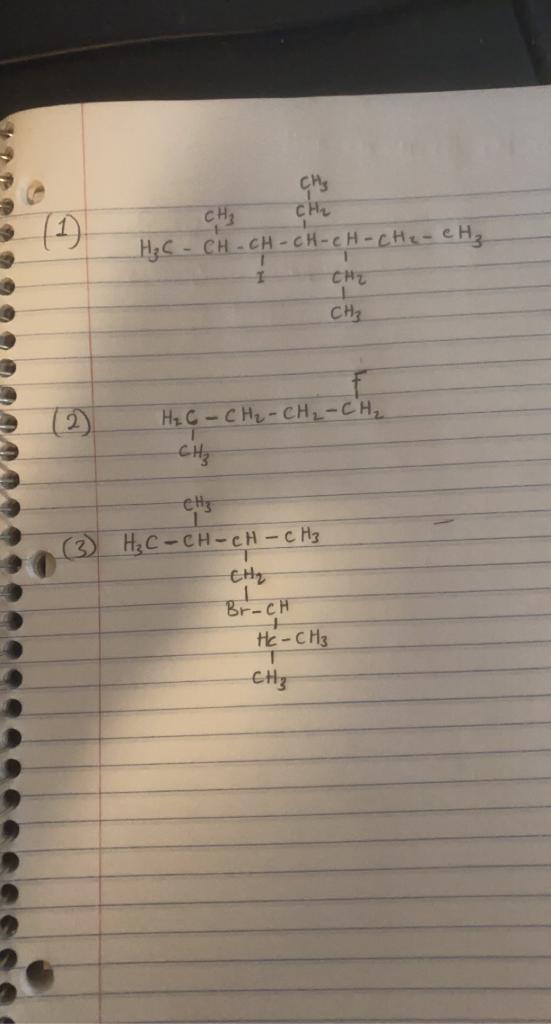 CH₃
CH₃ CH₂
(1) H₃C - CH - CH - CH - CH - CH₂ - CH₃
I CH₂
CH₃
F
(2) H₂C - CH₂ - CH₂ - CH₂
CH₃
CH₃
(3) H₃C - CH - CH - CH₃
CH₂
Br - CH
HC - CH₃
CH₃